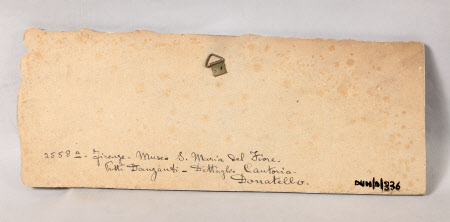 2558a - Firenze - Museo S. Maria del Fiore.
Putti Danzanti - Dettaglio Cantoria.
Donatello.